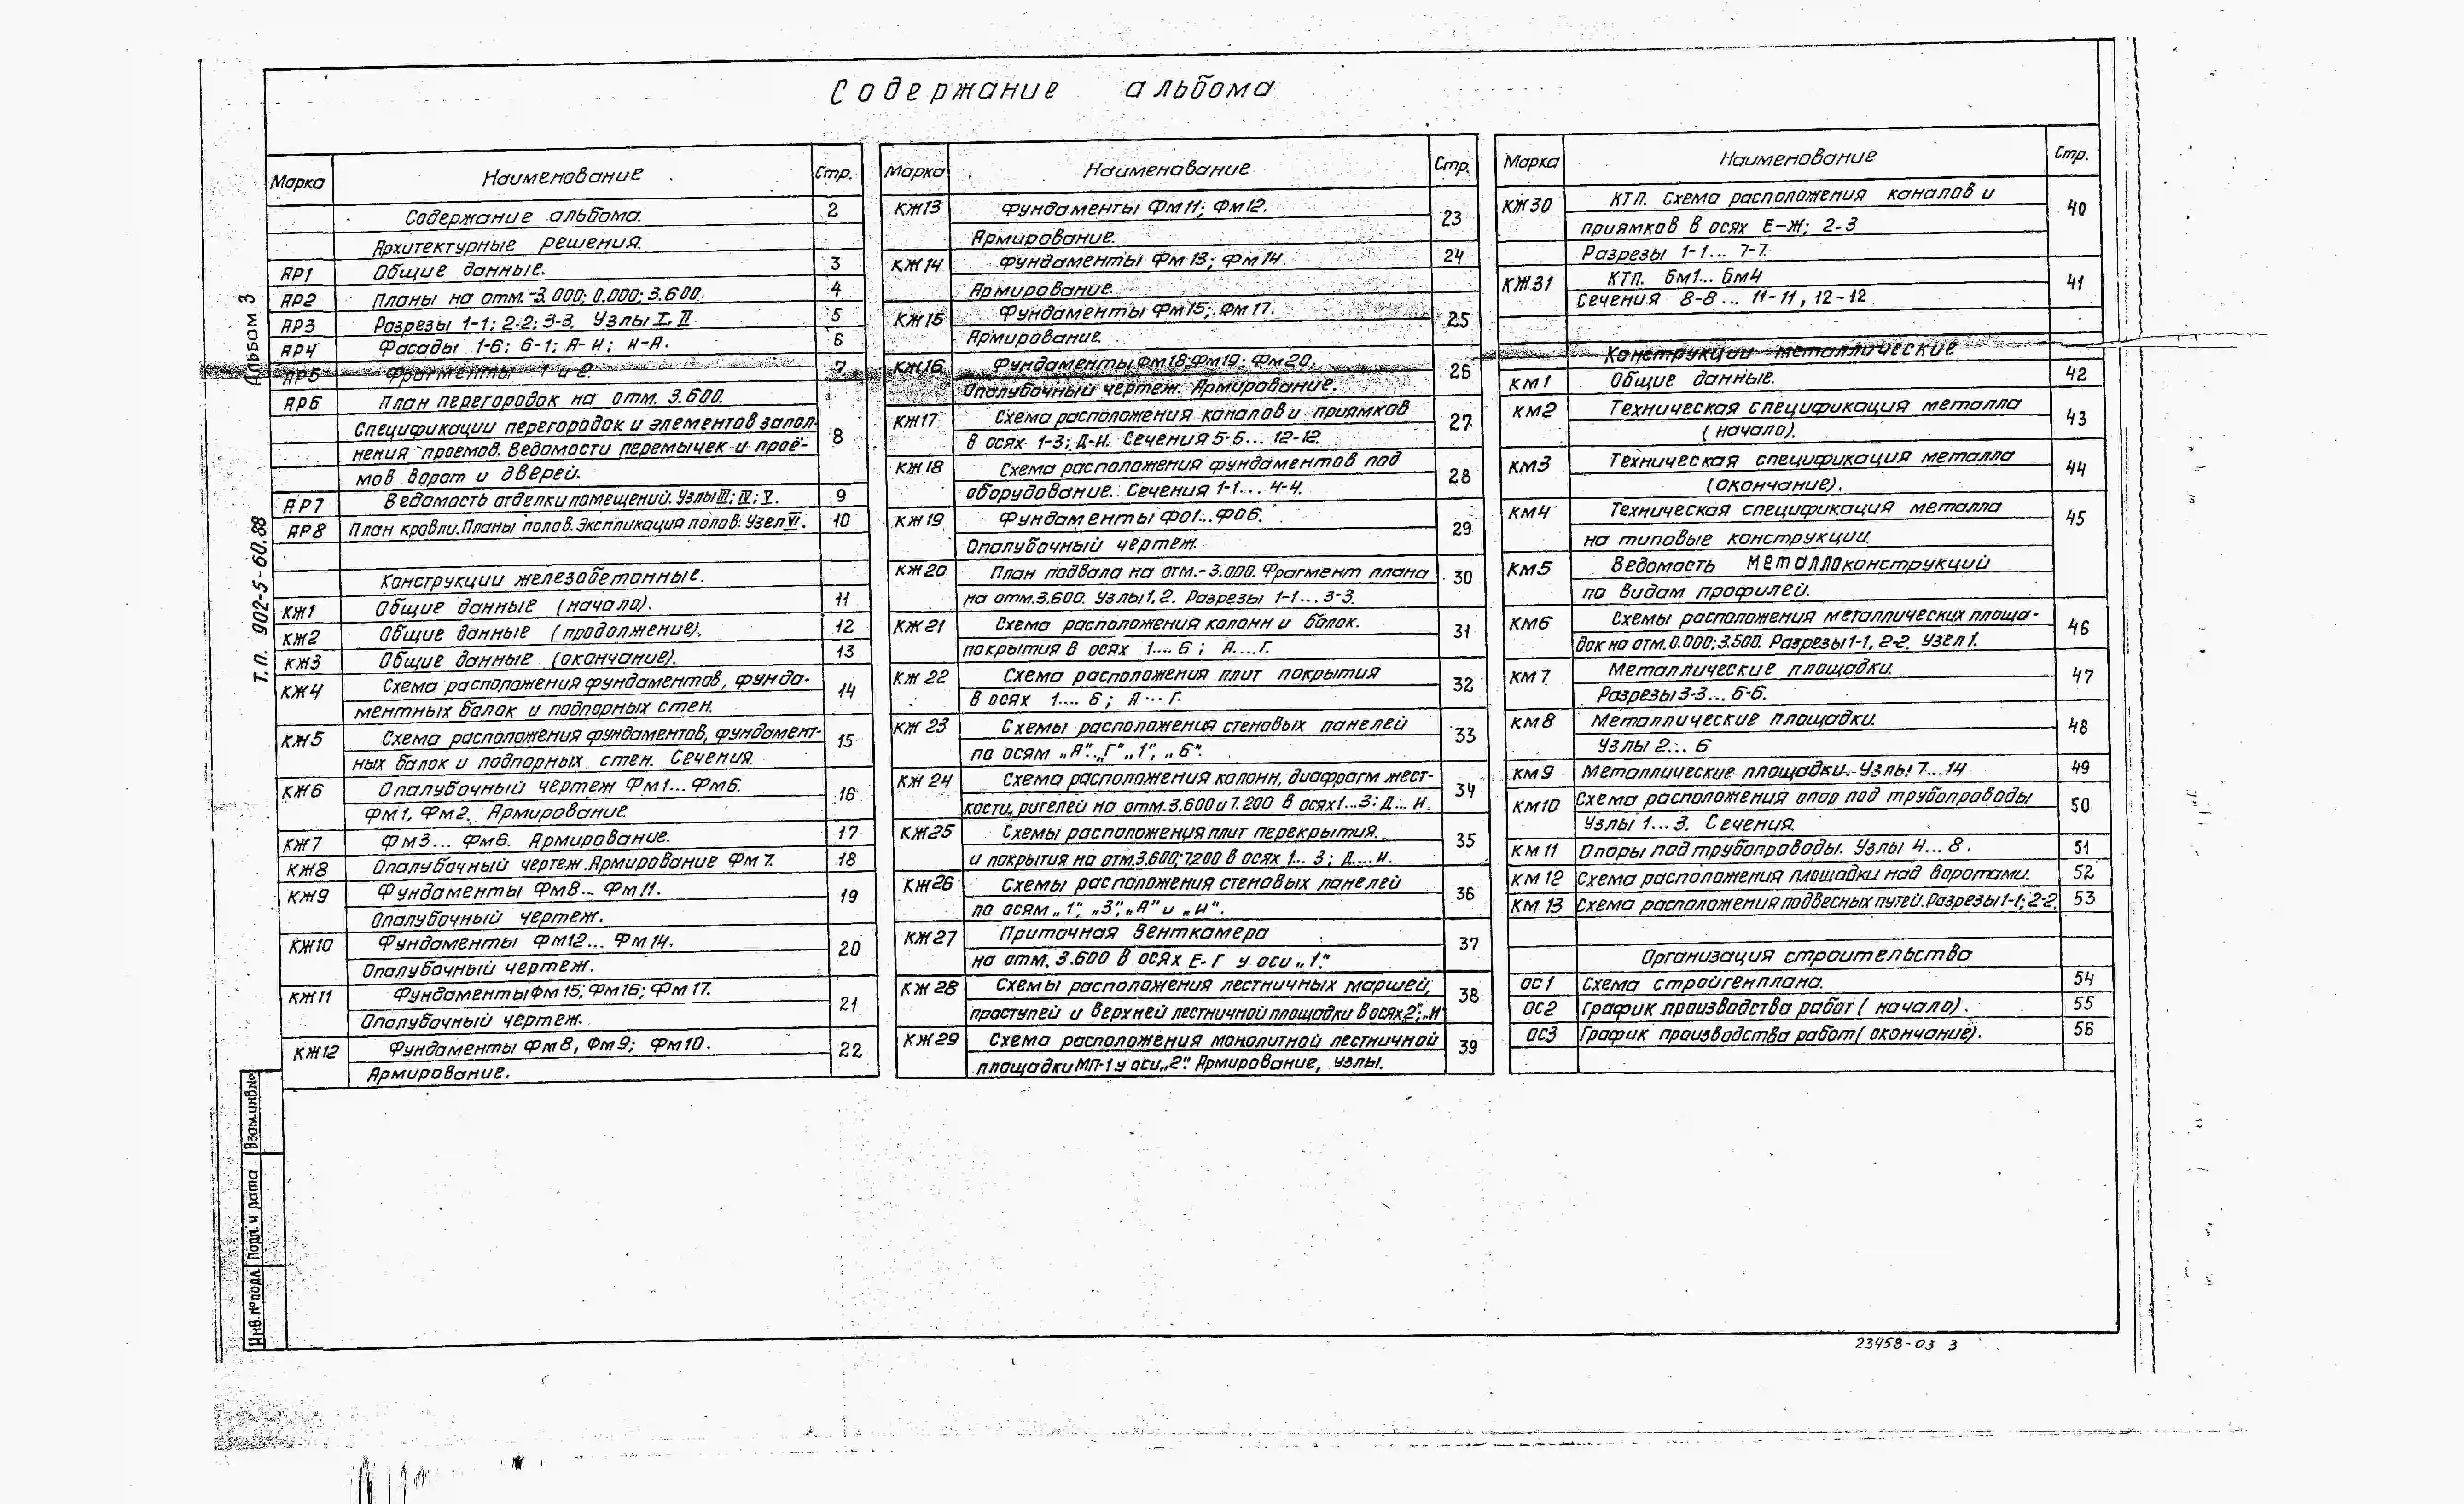 Содержание альбома
Марка Наименование Стр.
Содержание альбома. 2
Архитектурные решения.
АР1 Общие данные. 3
АР2 Планы на отм. -3.000; 0.000; 3.600. 4
АР3 Разрезы 1-1; 2-2; 3-3. Узлы I, II. 5
АР4 Фасады 1-6; 6-1; А-И; И-А. 6
АР5 Фрагменты 1 и 2. 7
АР6 План перегородок на отм. 3.600.
Спецификации перегородок и элементов запол- 8
нения проемов. Ведомости перемычек и проё-
мов ворот и дверей.
АР7 Ведомость отделки помещений. Узлы III; IV; V. 9
АР8 План кровли. Планы полов. Экспликация полов. Узел VI. 10
Конструкции железобетонные.
КЖ1 Общие данные (начало). 11
КЖ2 Общие данные (продолжение). 12
КЖ3 Общие данные (окончание). 13
КЖ4 Схема расположения фундаментов, фунда- 14
ментных балок и подпорных стен.
КЖ5 Схема расположения фундаментов, фундамент- 15
ных балок и подпорных стен. Сечения.
КЖ6 Опалубочный чертеж Фм1... Фм6. 16
Фм1, Фм2. Армирование
КЖ7 Фм3... Фм6. Армирование. 17
КЖ8 Опалубочный чертеж. Армирование Фм7. 18
КЖ9 Фундаменты Фм8... Фм11. 19
Опалубочный чертеж.
КЖ10 Фундаменты Фм12... Фм14. 20
Опалубочный чертеж.
КЖ11 Фундаменты Фм15; Фм16; Фм17. 21
Опалубочный чертеж.
КЖ12 Фундаменты Фм8, Фм9; Фм10. 22
Армирование.
Марка Наименование Стр.
КЖ13 Фундаменты Фм11; Фм12. 23
Армирование.
КЖ14 Фундаменты Фм13; Фм14. 24
Армирование.
КЖ15 Фундаменты Фм15; Фм17. 25
Армирование.
КЖ16 Фундаменты Фм18; Фм19; Фм20. 26
Опалубочный чертеж. Армирование.
КЖ17 Схема расположения каналов и приямков 27
в осях 1-3; Д-И. Сечения 5-5... 12-12.
КЖ18 Схема расположения фундаментов под 28
оборудование. Сечения 1-1... 4-4.
КЖ19 Фундаменты Фо1... Фо6. 29
Опалубочный чертеж.
КЖ20 План подвала на отм.-3.000. Фрагмент плана 30
на отм.3.600. Узлы 1, 2. Разрезы 1-1... 3-3.
КЖ21 Схема расположения колонн и балок. 31
покрытия в осях 1.... 6 ; А....Г.
КЖ22 Схема расположения плит покрытия 32
в осях 1.... 6 ; А... Г.
КЖ23 Схемы расположения стеновых панелей 33
по осям „А", „Г", „1", „6".
КЖ24 Схема расположения колонн, диафрагм жест- 34
кости, ригелей на отм.3.600 и 7.200 в осях 1...3; Д... И.
КЖ25 Схемы расположения плит перекрытия 35
и покрытия на отм.3.600; 7.200 в осях 1... 3; Д....И.
КЖ26 Схемы расположения стеновых панелей 36
по осям „1", „3", „А" и „И".
КЖ27 Приточная венткамера 37
на отм. 3.600 в осях Е-Г у оси „1".
КЖ28 Схемы расположения лестничных маршей, 38
проступей и верхней лестничной площадки в осях 2"; „И
КЖ29 Схема расположения монолитной лестничной 39
площадки МП-1 у оси „2". Армирование, узлы.
Марка Наименование Стр.
КЖ30 КТП. Схема расположения каналов и 40
приямков в осях Е-Ж; 2-3
Разрезы 1-1... 7-7.
КЖ31 КТП. Бм1... Бм4 41
Сечения 8-8... 11-11, 12-12
Конструкции металлические
КМ1 Общие данные. 42
КМ2 Техническая спецификация металла 43
(начало).
КМ3 Техническая спецификация металла 44
(окончание).
КМ4 Техническая спецификация металла 45
на типовые конструкции.
КМ5 Ведомость металлоконструкций
по видам профилей.
КМ6 Схемы расположения металлических площа- 46
док на отм.0.000; 3.500. Разрезы 1-1, 2-2. Узел 1.
КМ7 Металлические площадки. 47
Разрезы 3-3... 6-6.
КМ8 Металлические площадки. 48
Узлы 2... 6
КМ9 Металлические площадки. Узлы 7...14 49
КМ10 Схема расположения опор под трубопроводы 50
Узлы 1... 3. Сечения.
КМ11 Опоры под трубопроводы. Узлы 4... 8. 51
КМ12 Схема расположения площадки над воротами. 52
КМ13 Схема расположения подвесных путей. Разрезы 1-1; 2-2. 53
Организация строительства
ОС1 Схема стройгенплана. 54
ОС2 График производства работ (начало). 55
ОС3 График производства работ (окончание). 56
Альбом 3
Т.П. 902-5-60.88
Взам.инв.№
Подп. и дата
Инв.№ подл.
23458-03 3